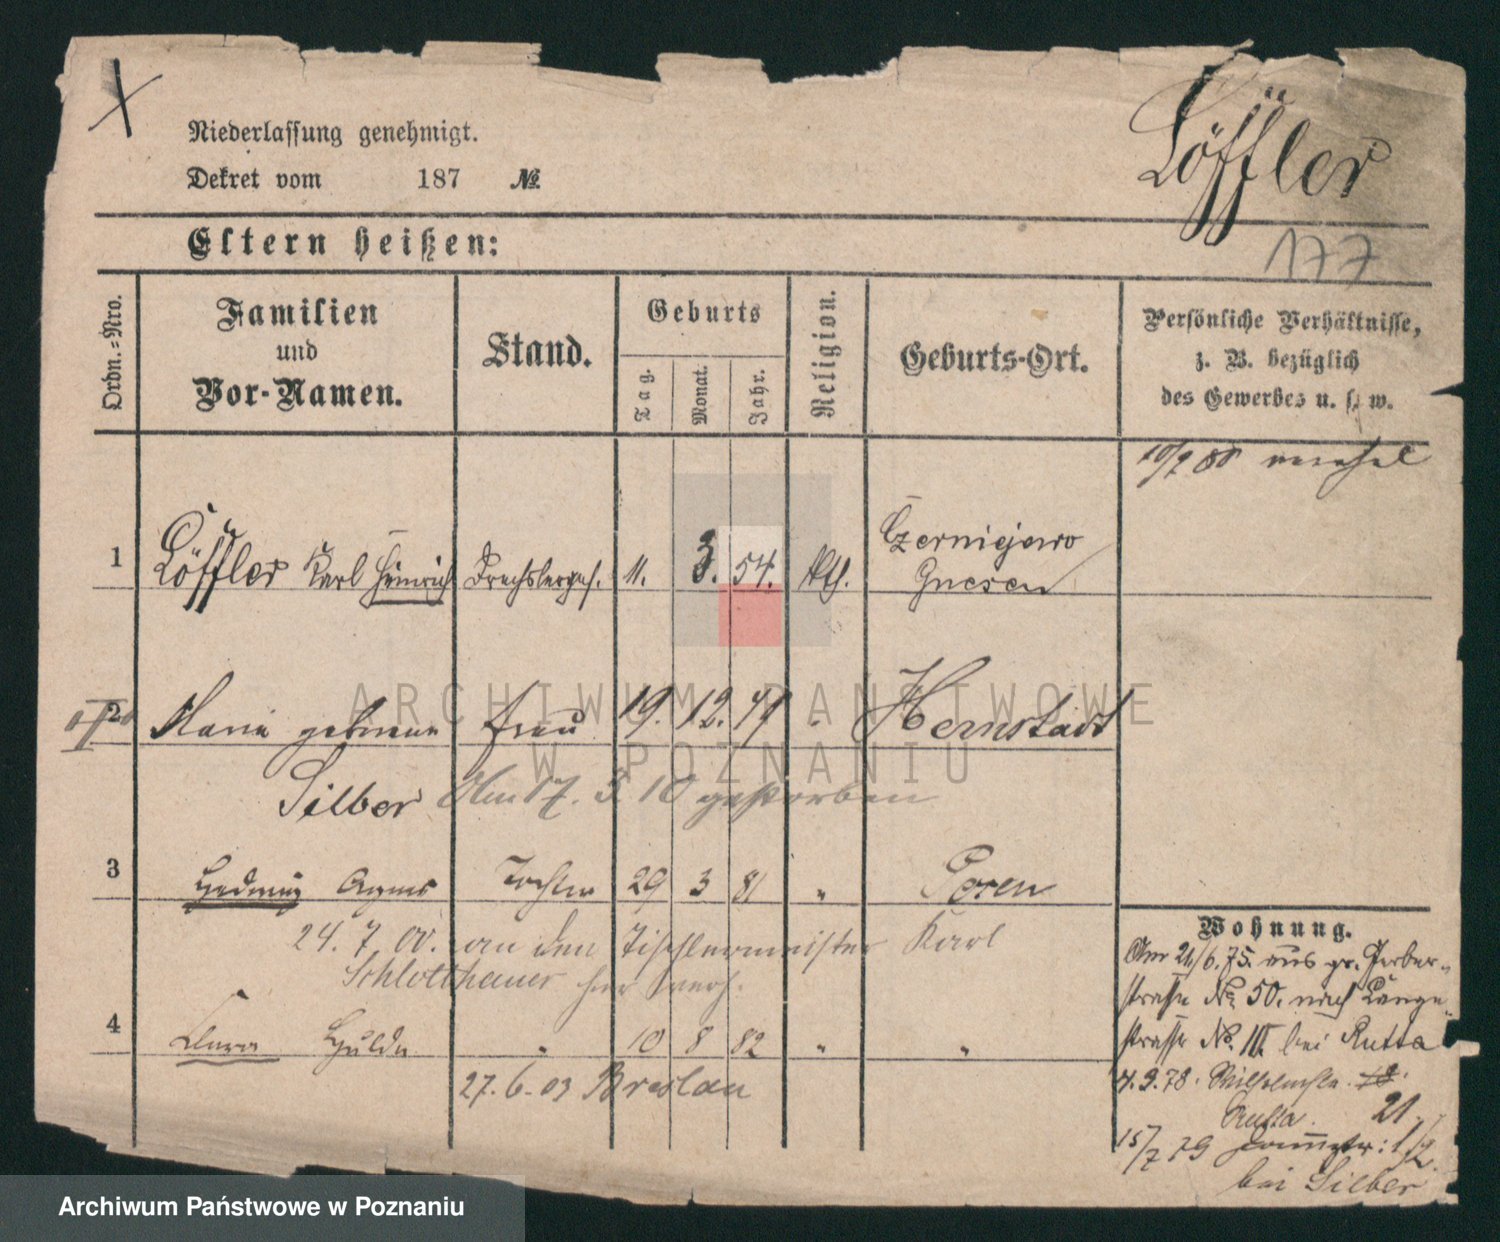 Niederlassung genehmigt.
Löffler
Dekret vom 187 №
Eltern heißen:
177
Ordn.=Nro.
Familien
und
Vor-Namen.
Stand.
Geburts
Tag.
Monat.
Jahr.
Religion.
Geburts-Ort.
Persönliche Verhältnisse,
z. B. bezüglich
des Gewerbes u. s. w.
1 Löffler Karl Heinrich Drechslerges. 11. 3. 54. kth. Czerniejewo
Gnesen
2 Maria geborene Frau 19. 12. 49 " Hernstadt
Silber Am 17. 3 10 gestorben
3 Hedwig Agnes Tochter 29 3 81 " Posen
24. 7 00. an den Tischlermeister Karl
Schlotthauer hier verh.
4 Clara Hulda " 10 8 82 " "
27. 6. 03 Breslau
Wohnung.
Am 21/6. 75. aus gr. Gerber-
straße No 50. nach Lange
straße No. III bei Rutta
4. 9. 78. 18.
Rutta. 21.
15/7 79 1/2.
bei Silber
ARCHIWUM PAŃSTWOWE
W POZNANIU
Archiwum Państwowe w Poznaniu